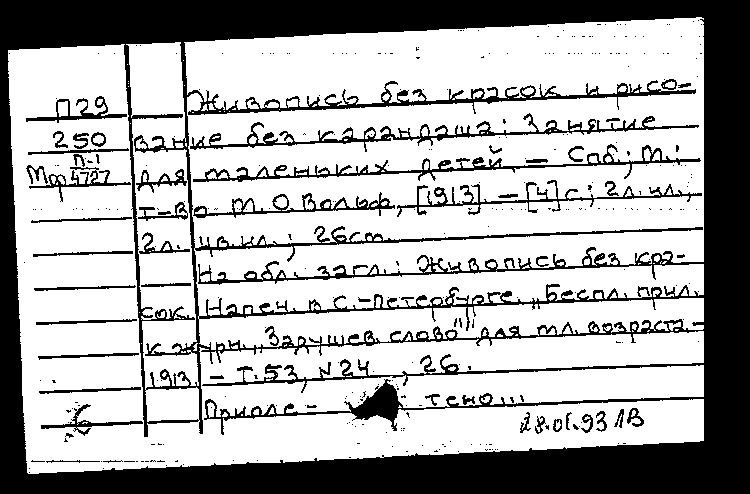 П29 Живопись без красок и рисо-
250 вание без карандаша: Занятие
П-1
Мф 4727 для маленьких детей. — Спб.; М.:
т-во М. О. Вольф, [1913]. — [4] с.; 2 л. ил.,
2 л. цв. ил.; 26 см.
На обл. загл.: Живопись без кра-
сок. Напеч. в С.-Петербурге. „Беспл. прил.
к журн. „Задушев. слово"" для мл. возраста. —
1913. — Т. 53, N 24 , 26.
б Припле- тено...
28.01.93 ЛВ